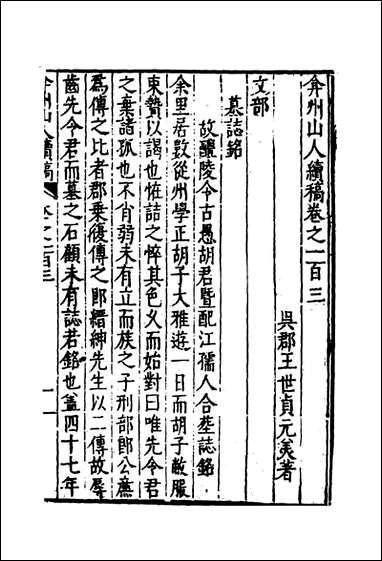 弇州山人續稿卷之一百三
吳郡王世貞元美著
文部
墓誌銘
故醴陵令古愚胡君暨配江孺人合塟誌銘
余里居數從州學正胡子大雅遊一日而胡子敝服
束贄以謁也恠詰之悴其色乆而始對曰唯先令君
之棄諸孤也不肖弱未有立而族之子刑部郎公廡
爲傳之比者郡乗復傳之郎縉紳先生以二傳故辱
齒先令君而墓之石顧未有誌若銘也盖四十七年
弇州山人續稿
卷之一百三
一